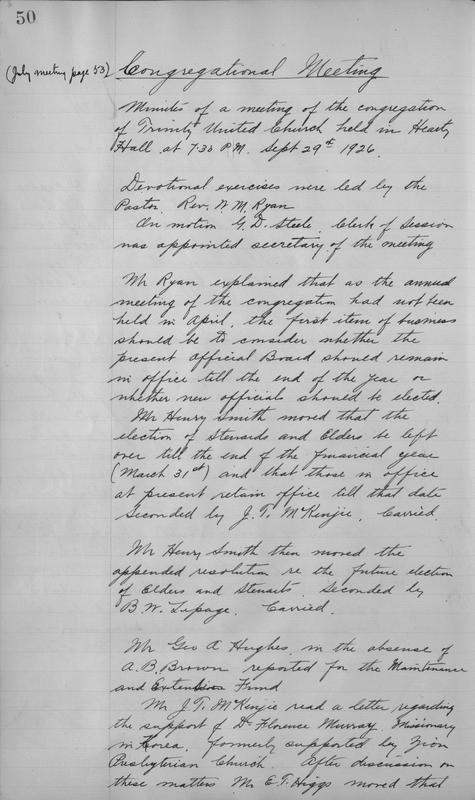 50
(July meeting page 53) Congregational Meeting
Minutes of a meeting of the congregation
of Trinity United Church held in Hearts
Hall at 7.30 P.M. Sept 29th 1926.
Devotional exercises were led by the
Pastor. Rev. W. M. Ryan
On motion G. D. Steele, Clerk of Session
was appointed secretary of the meeting
Mr Ryan explained that as the annual
meeting of the congregation had not been
held in April, the first item of business
should be to consider whether the
present Official Board should remain
in office till the end of the year or
whether new officials should be elected.
Mr Henry Smith moved that the
election of Stewards and Elders be left
over till the end of the financial year
(March 31st) and that those in office
at present retain office till that date
seconded by J. T. McKenzie. Carried.
Mr Henry Smith then moved the
appended resolution re the future election
of Elders and Stewards. Seconded by
B. W. Lepage. Carried.
Mr Geo A Hughes, in the absense of
A. B. Brown reported for the Maintenance
and Extension Fund
Mr J. T. McKenzie read a letter regarding
the support of Dr Florence Murray, Missionary
in Korea, formerly supported by Zion
Presbyterian Church. After discussion on
these matters Mr E. T. Higgs moved that